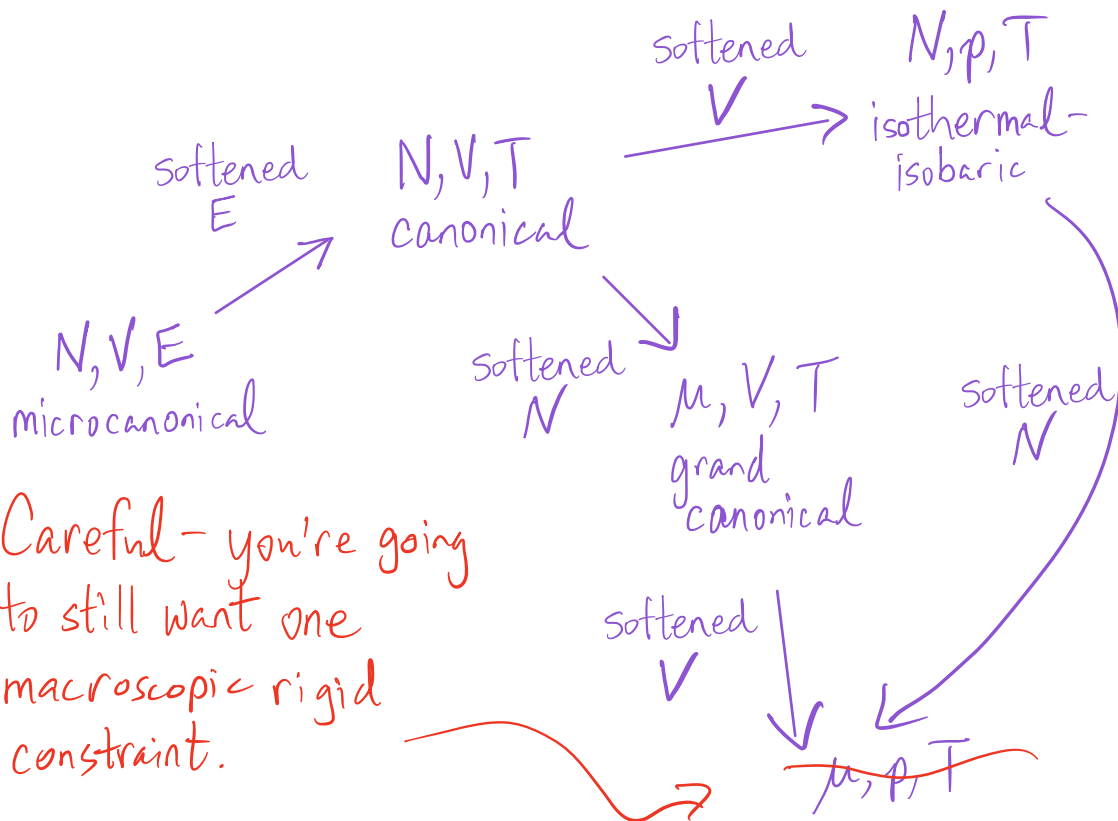 softened
V
N, p, T
isothermal-
isobaric
softened
E
N, V, T
canonical
N, V, E
microcanonical
softened
N
μ, V, T
grand
canonical
softened
N
Careful - you're going
to still want one
macroscopic rigid
constraint.
softened
V
μ, p, T